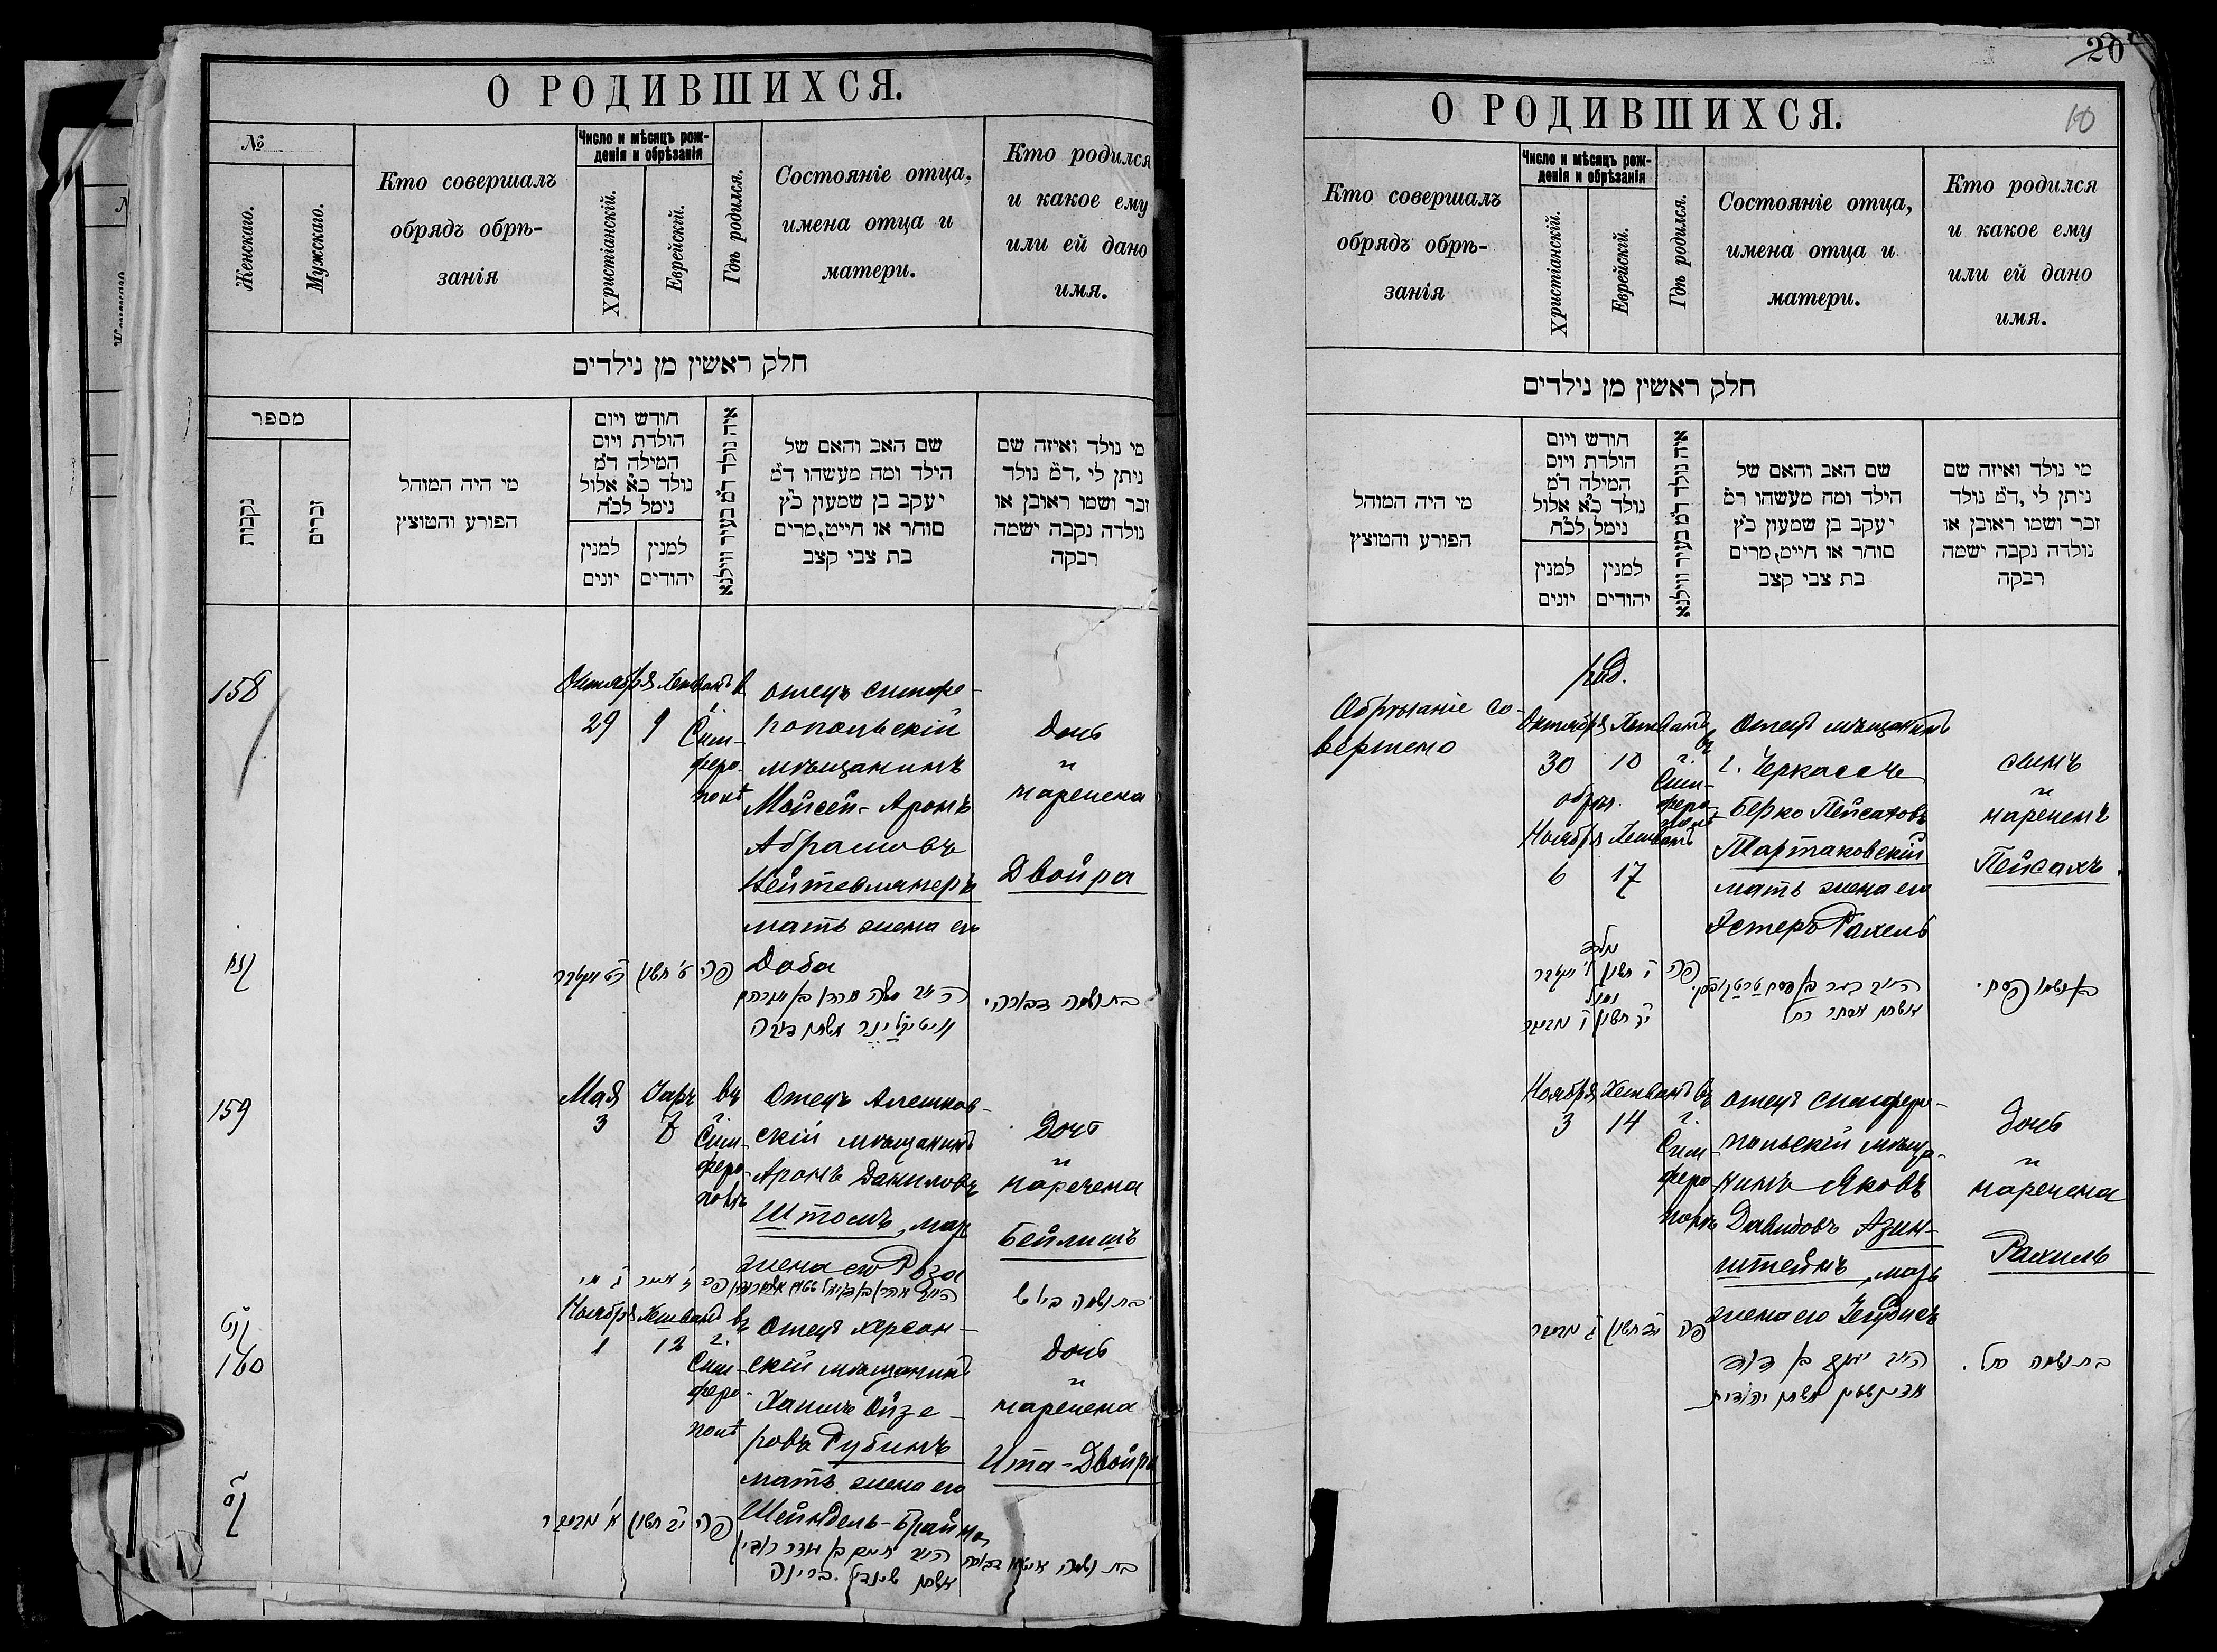 О РОДИВШИХСЯ.
№
Женскаго.
Мужскаго.
Кто совершалъ
обрядъ обрѣ-
занія
Число и мѣсяцъ рож-
денія и обрѣзанія
Христіанскій.
Еврейскій.
Гдѣ родился.
Состояніе отца,
имена отца и
матери.
Кто родился
и какое ему
или ей дано
имя.
חלק ראשין מן נילדים
מספר
נקבות
זכרים
מי היה המוהל
הפורע והמוצץ
חודש ויום
הולדת ויום
המילה ד״מ
נולד כ״א אלול
נימל לכ״ח
למנין
יונים
למנין
יהודים
איה נולד ד״מ בעיר ווילנא
שם האב והאם של
הילד ומה מעשהו ד״מ
יעקב בן שמעון כ״ץ
סוחר או חייט, מרים
בת צבי קצב
מי נולד ואיזה שם
ניתן לי, ד״מ נולד
זכר ושמו ראובן או
נולדה נקבה ישמה
רבקה
158
Октября Хешванъ в
29 9
г.
Сим-
феро-
полѣ
отецъ симфе-
ропольскій
мѣщанинъ
Мойсей-Аронъ
Абрамовъ
мать жена его
Доба
Дочь
и
наречена
Двойра
קנח
פה
בת ושמה דבורה.
159
Мая Іаръ въ
3 7
г.
Сим-
феро-
полѣ
Отецъ Алешков-
скій мѣщанинъ
Аронъ Даниловъ
жена его Роза
Дочь
и
наречена
קנט
160
Ноября Хешванъ въ
1 12
г.
Сим-
феро-
полѣ
Отецъ Херсон-
скій мѣщанинъ
Рубинъ
мать жена его
Шейндель-Брайна
Дочь
и
наречена
Ита-Двойра
קס
פה
20
10
О РОДИВШИХСЯ.
Кто совершалъ
обрядъ обрѣ-
занія
Число и мѣсяцъ рож-
денія и обрѣзанія
Христіанскій.
Еврейскій.
Гдѣ родился.
Состояніе отца,
имена отца и
матери.
Кто родился
и какое ему
или ей дано
имя.
חלק ראשין מן נילדים
מי היה המוהל
הפורע והמוצץ
חודש ויום
הולדת ויום
המילה ד״מ
נולד כ״א אלול
נימל לכ״ח
למנין
יונים
למנין
יהודים
איה נולד ד״מ בעיר ווילנא
שם האב והאם של
הילד ומה מעשהו ד״מ
יעקב בן שמעון כ״ץ
סוחר או חייט, מרים
בת צבי קצב
מי נולד ואיזה שם
ניתן לי, ד״מ נולד
זכר ושמו ראובן או
נולדה נקבה ישמה
רבקה
Обрѣзаніе со-
вершено
род.
Октября Хешванъ
30 10
обрѣз.
Ноября Хешванъ
6 17
въ
г.
Сим-
феро-
полѣ
Отецъ мѣщанинъ
г. Черкассъ
Берко Пейсаховъ
Тартаковскій
мать жена его
Эстеръ Рахель
сынъ
и
нареченъ
Пейсахъ.
פה
בן ושמו פסח.
Ноября Хешванъ въ
3 14
г.
Сим-
феро-
полѣ
отецъ симферо-
польскій мѣща-
нинъ Яковъ
Давидовъ Азин-
штейнъ, мать
жена его
Дочь
и
наречена
Рахиль
פה
בת ושמה רחל.